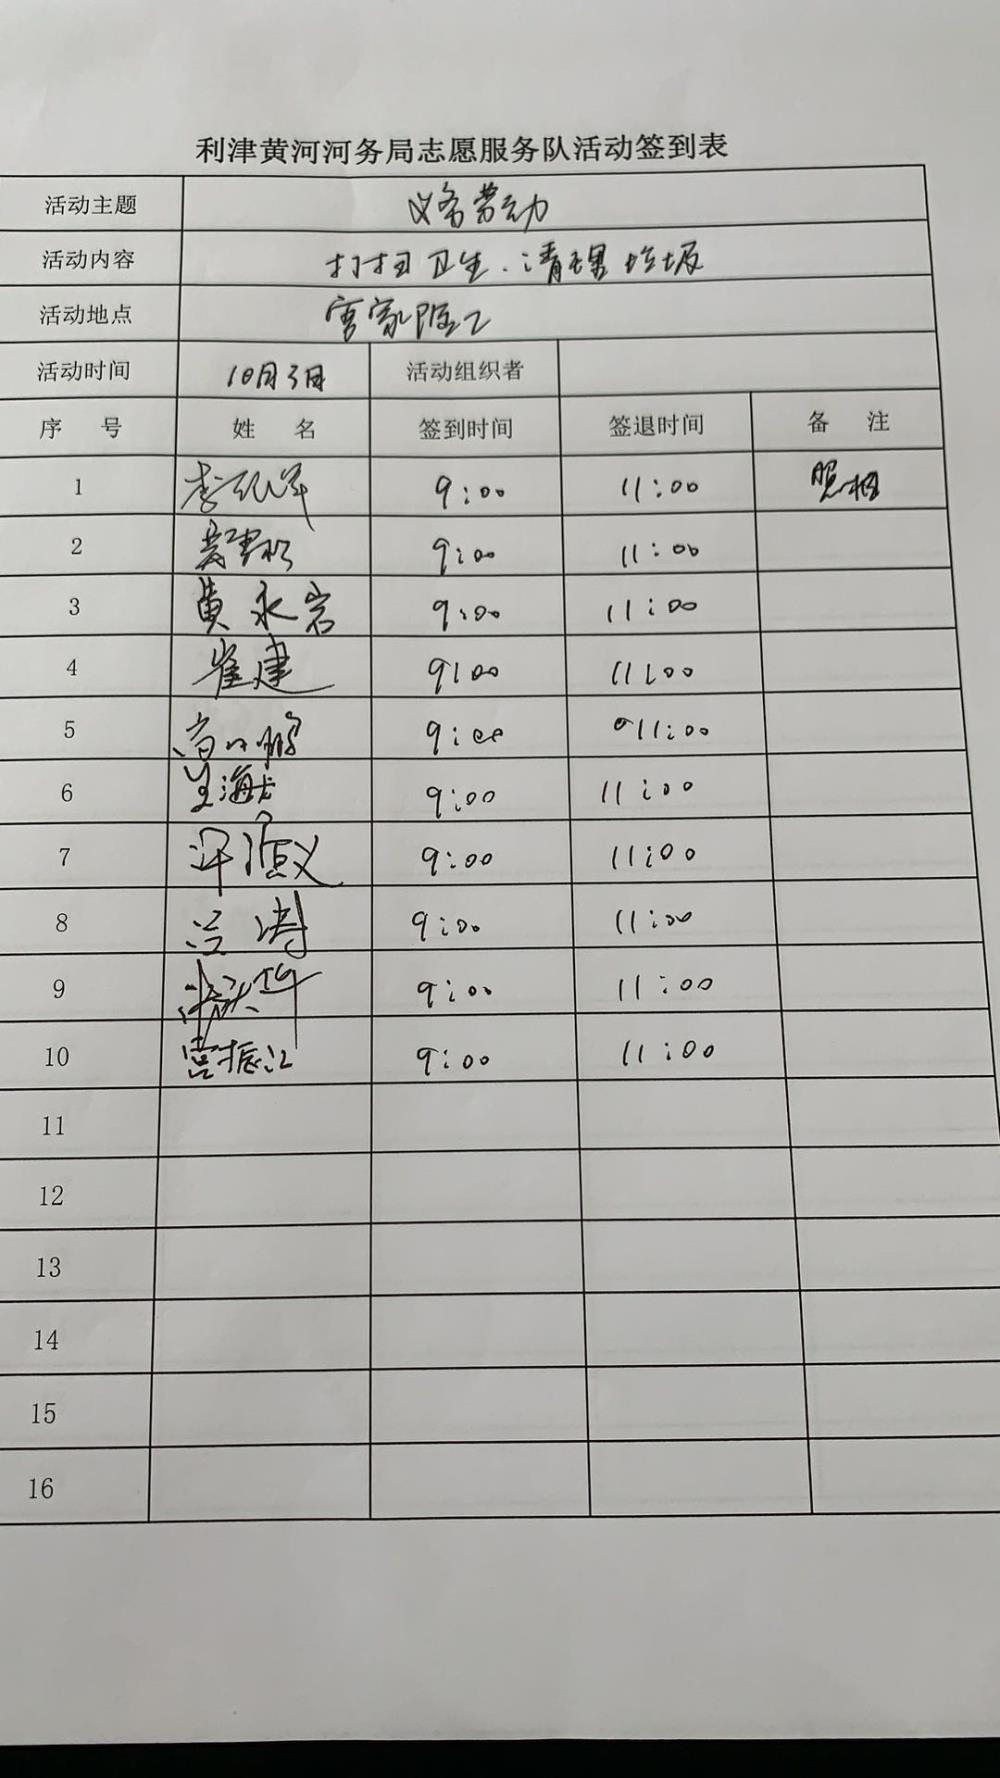 利津黄河河务局志愿服务队活动签到表
活动主题 义务劳动
活动内容 打扫卫生.清理垃圾
活动地点 宫家险工
活动时间 10月3日 活动组织者
序 号 姓 名 签到时间 签退时间 备 注
1 9:00 11:00 照相
2 9:00 11:00
3 黄永岩 9:00 11:00
4 崔建 9:00 11:00
5 9:00 11:00
6 9:00 11:00
7 9:00 11:00
8 9:00 11:00
9 9:00 11:00
10 宫振江 9:00 11:00
11
12
13
14
15
16